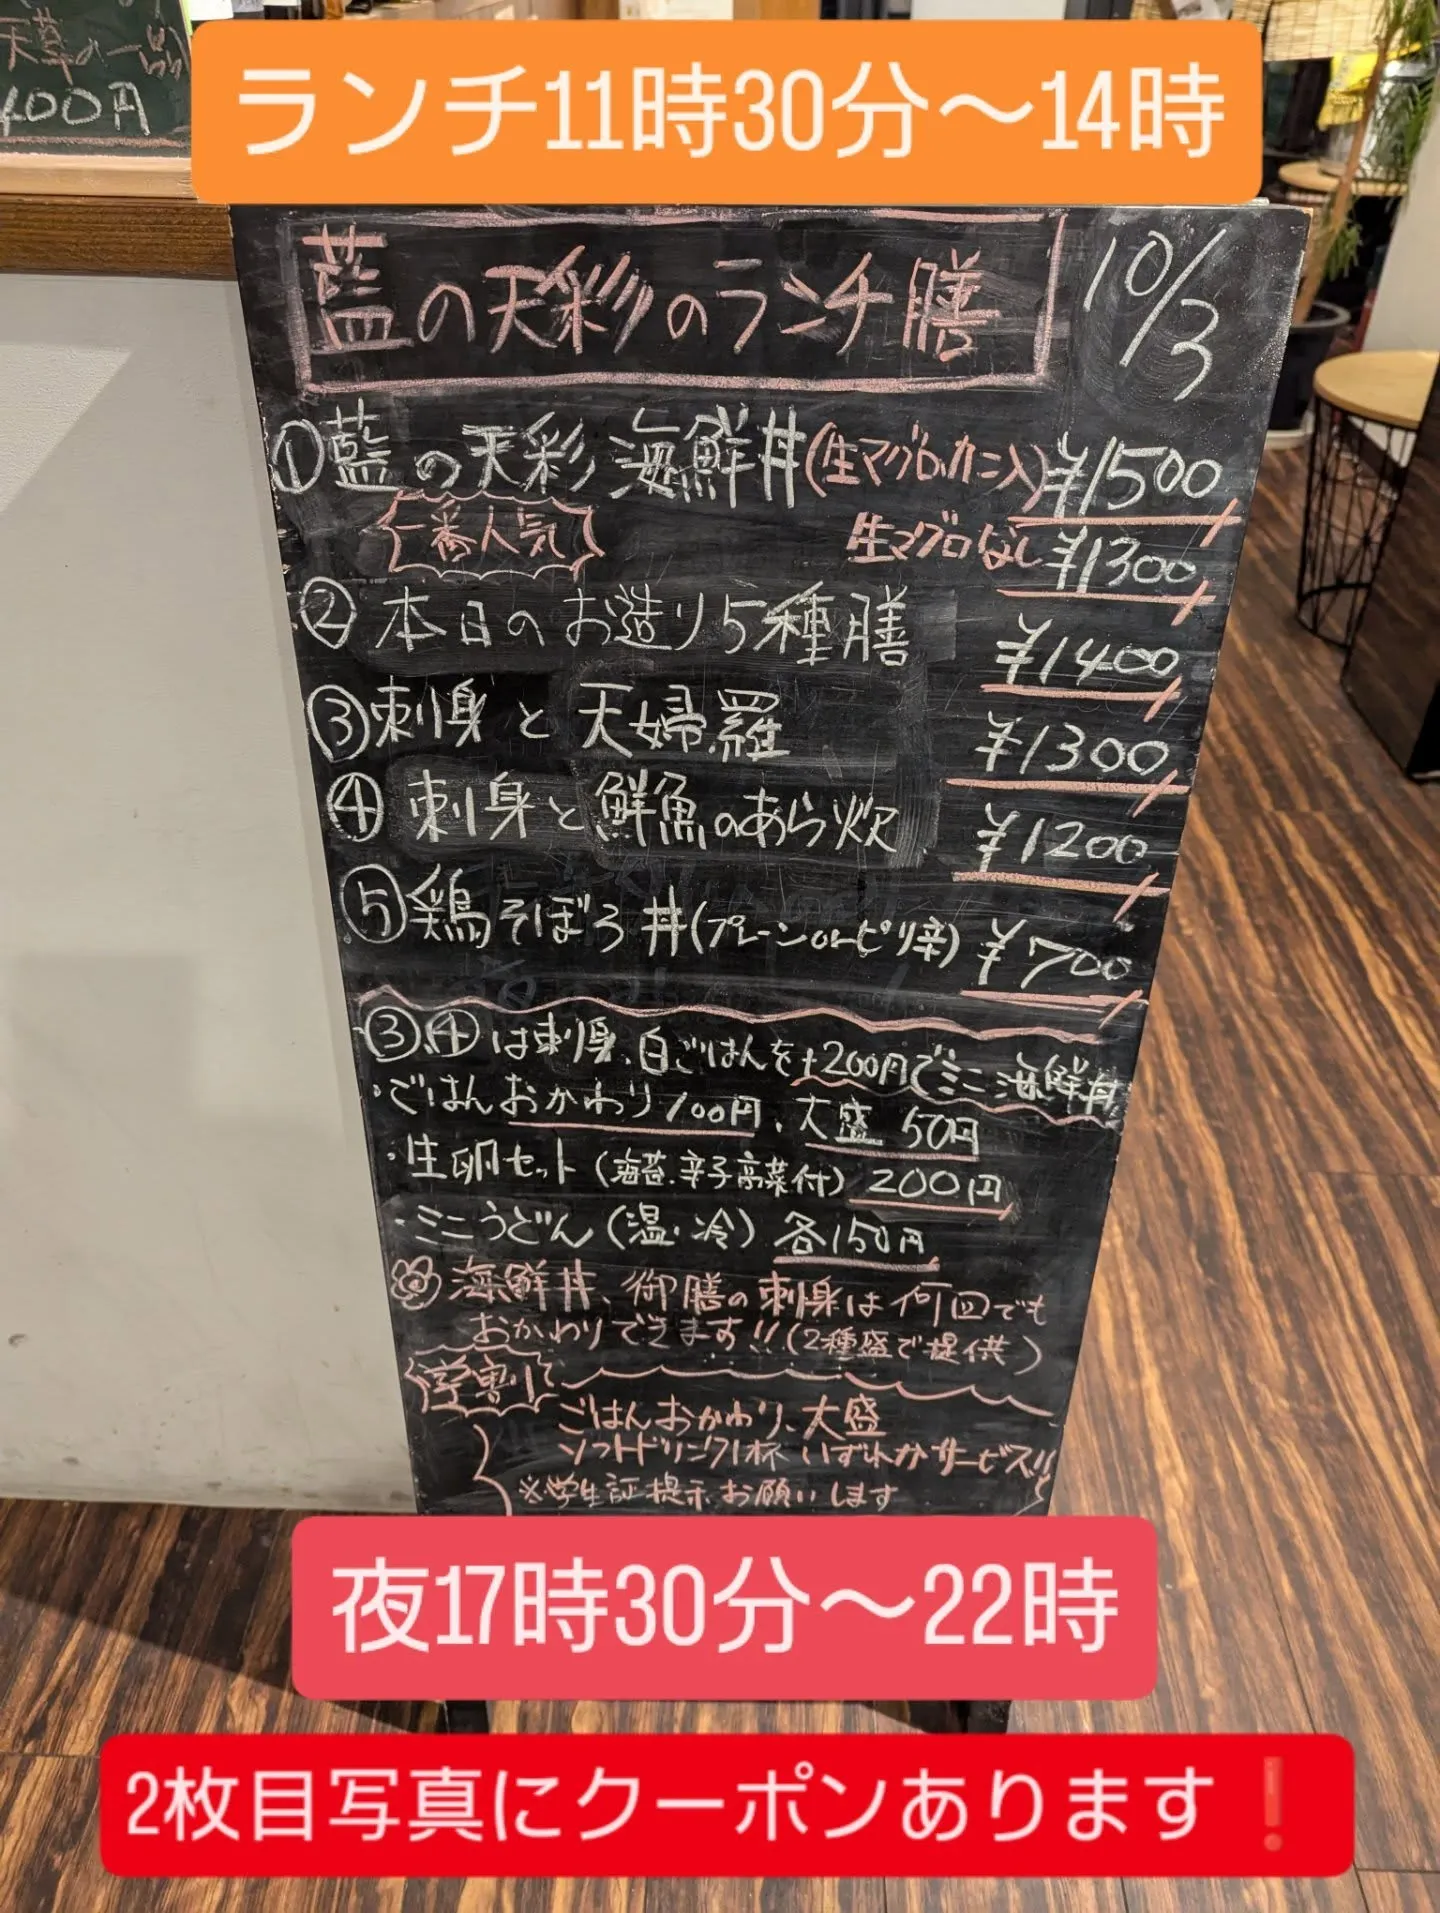 天草の一品
400円
ランチ11時30分〜14時
藍の天彩のランチ膳
10/3
①藍の天彩海鮮丼(生マグロ、カニ入)¥1500
一番人気
生マグロなし¥1300
②本日のお造り5種膳 ¥1400
③刺身と天婦羅 ¥1300
④刺身と鮮魚のあら炊 ¥1200
⑤鶏そぼろ丼(プレーンorピリ辛) ¥700
③、④は刺身、白ごはんを+200円でミニ海鮮丼
・ごはんおかわり100円、大盛50円
・生卵セット(海苔・辛子高菜付)200円
・ミニうどん(温・冷)各150円
海鮮丼、御膳の刺身は何回でも
おかわりできます!!(2種盛で提供)
学割
ごはんおかわり、大盛
ソフトドリンク1杯いずれかサービス!!
※学生証提示お願いします
夜17時30分〜22時
2枚目写真にクーポンあります❗